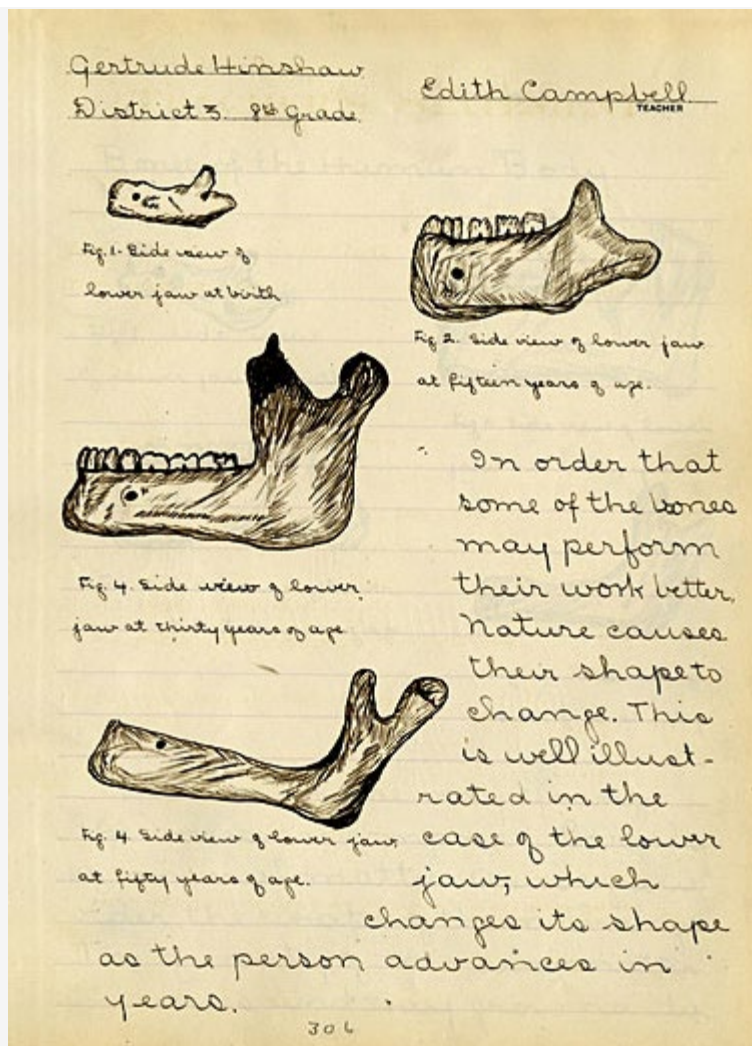 Gertrude Hinshaw
District 3. 8th Grade.
Edith Campbell
TEACHER
Fig. 1. Side view of
lower jaw at birth
Fig 2. Side view of lower jaw
at fifteen years of age.
Fig. 4. Side view of lower
jaw at thirty years of age
Fig. 4. Side view of lower jaw,
at fifty years of age.
In order that
some of the bones
may perform
their work better,
Nature causes
their shape to
change. This
is well illust-
rated in the
case of the lower
jaw, which
changes its shape
as the person advances in
years.
306